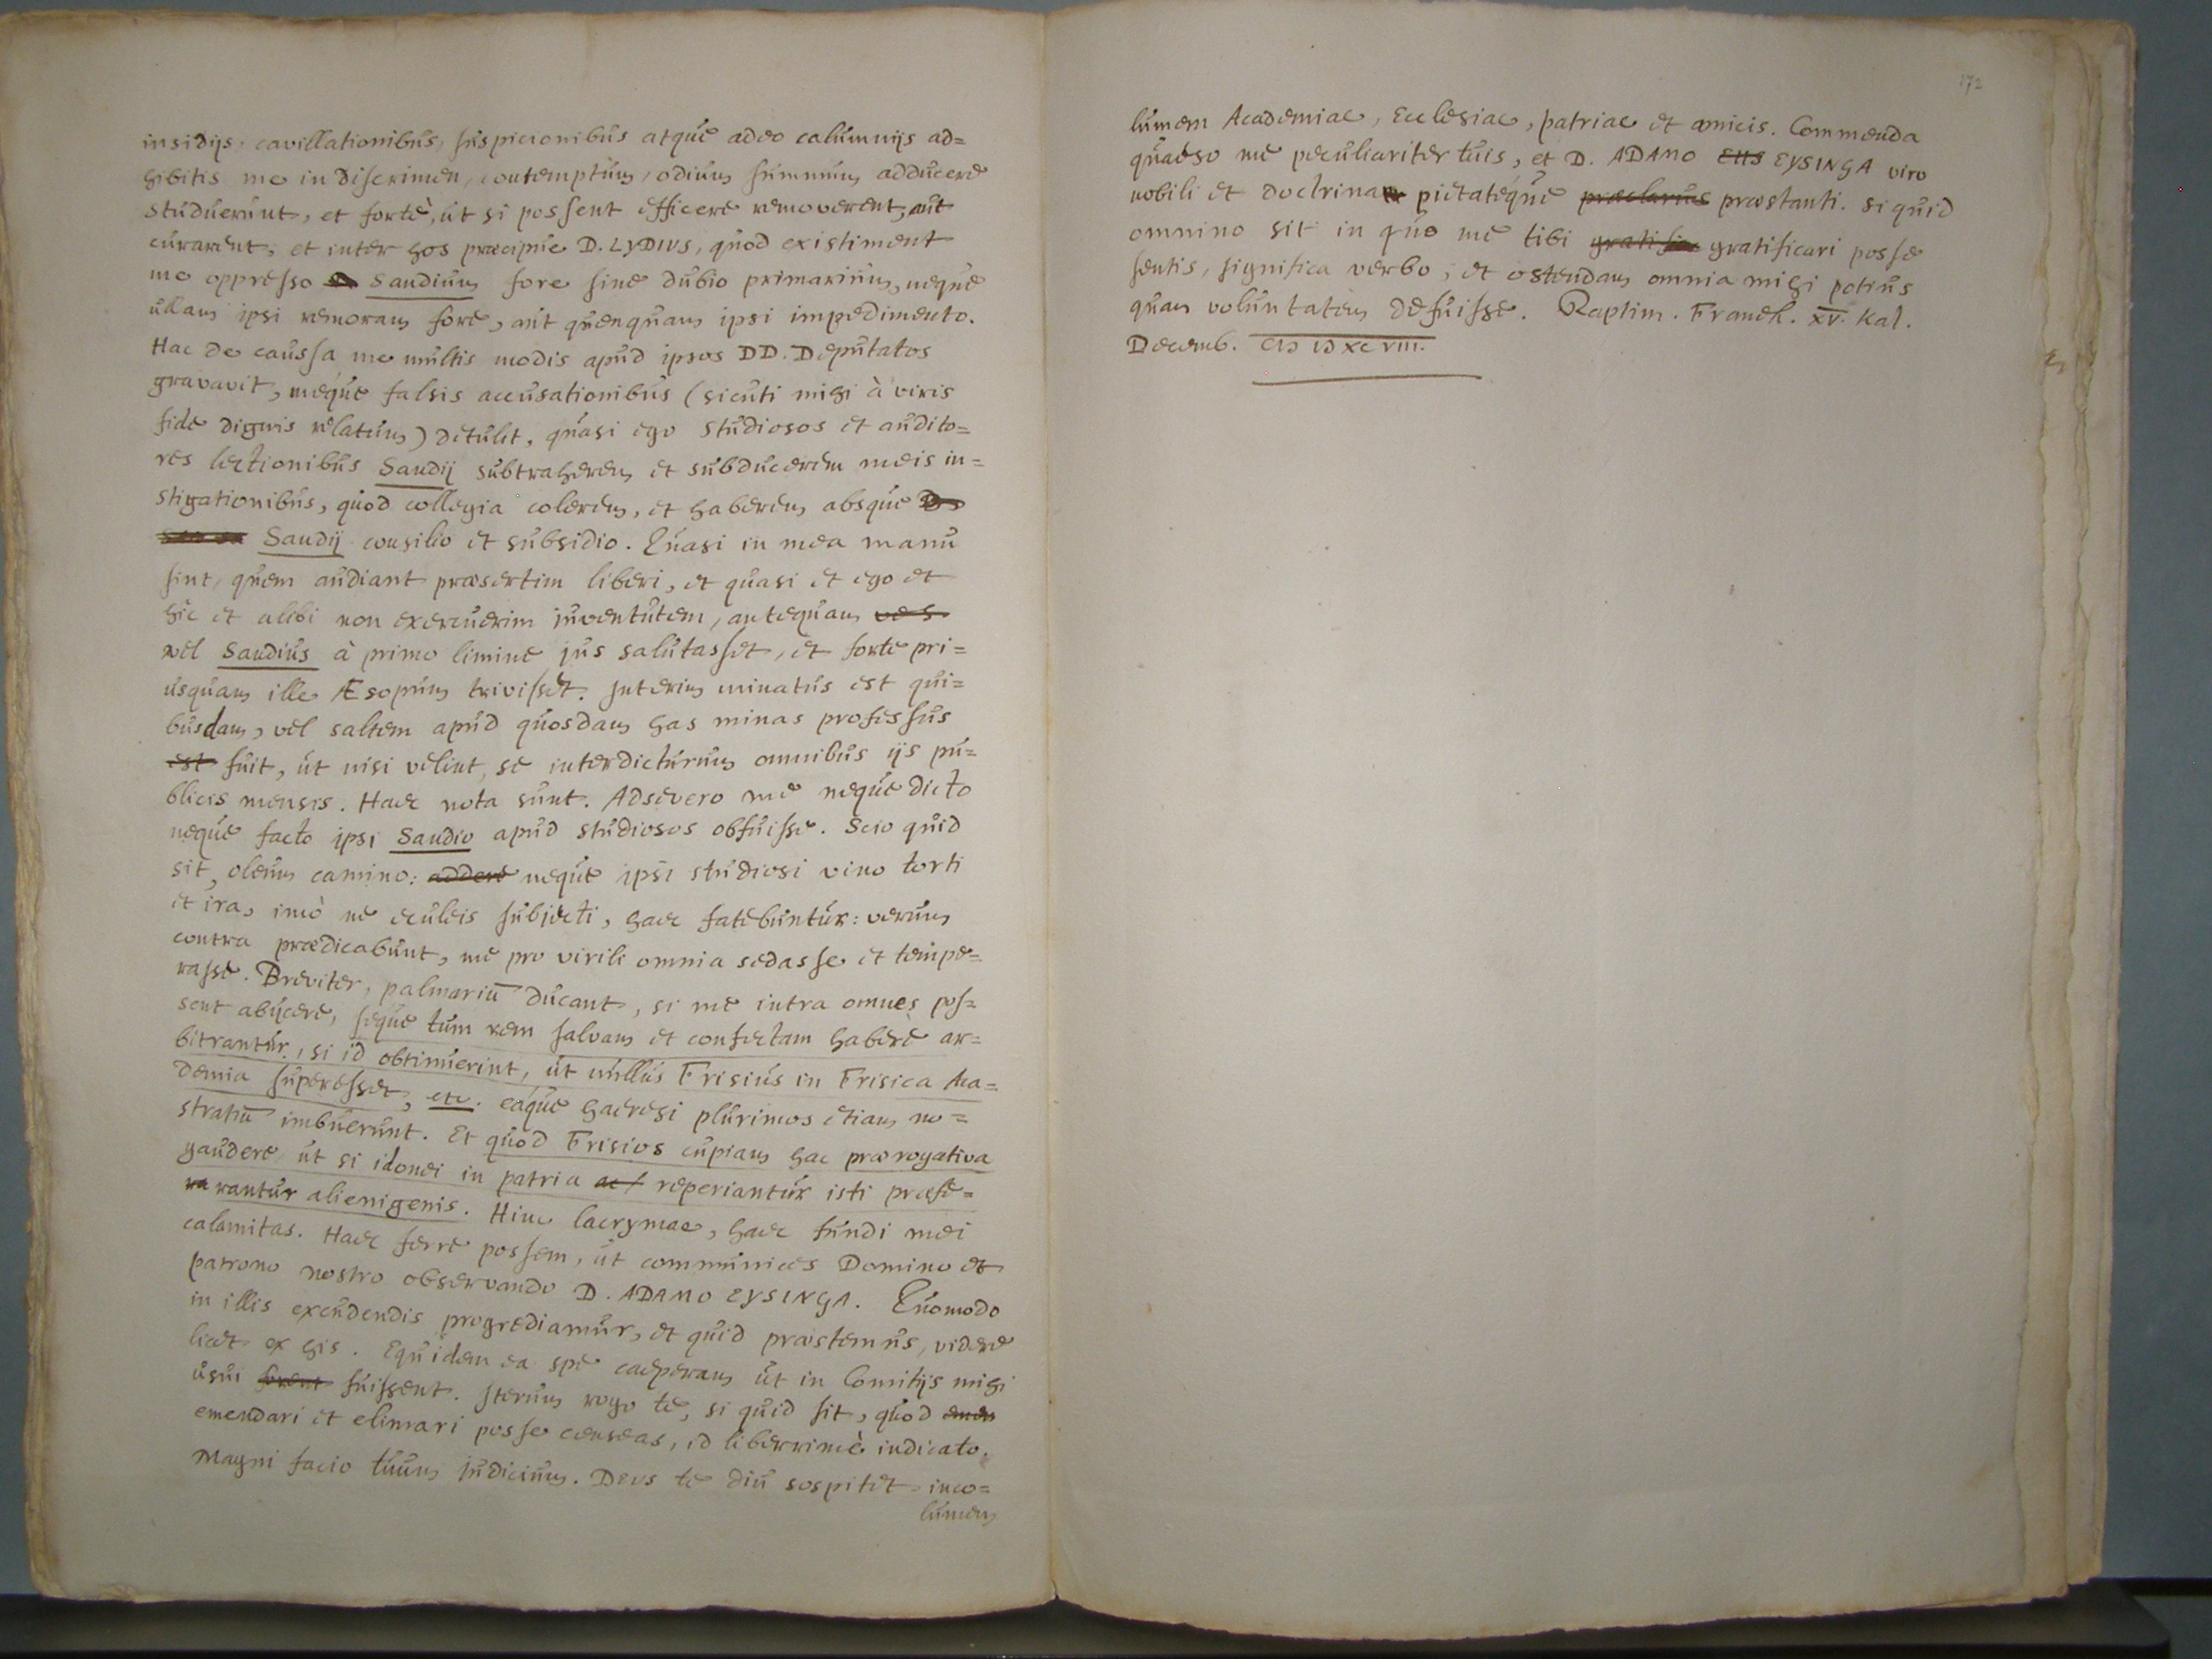 insidijs, cavillationibus, suspicionibus atque adeo calumnijs ad=
hibitis me in discrimen, contemptum, odium summum adducere
studuerunt, et forte, ut si possent efficere removerent, aut
curarent, et inter hos praecipue D. LYDIUS, quod existiment
me oppresso Saudium fore sine dubio primarium, neque
ullam ipsi remoram fore, aut quenquam ipsi impedimento.
Hac de caussa me multis modis apud ipsos DD. Deputatos
gravavit, meque falsis accusationibus (sicuti mihi à viris
fide dignis relatum) detulit, quasi ego studiosos et audito=
res lectionibus Saudij subtraherem et subducerem meis in=
stigationibus, quod collegia colerem, et haberem absque
Saudij consilio et subsidio. Quasi in mea manu
sint, quem audiant praesertim liberi, et quasi et ego et
hic et alibi non exercuerim juventutem, antequam
vel Saudius à primo limine jus salutasset, et forte pri=
usquam ille Æsopum trivisset. Interim minatus est qui=
busdam, vel saltem apud quosdam has minas professus
est fuit, ut nisi velint, se interdicturum omnibus ijs pu=
blicis mensis. Haec nota sunt. Adsevero me neque dicto
neque facto ipsi Saudio apud studiosos obfuisse. Scio quid
sit, oleum camino: addere neque ipsi studiosi vino torti
et ira, imò ne eculeis subjecti, haec fatebuntur: verum
contra praedicabunt, me pro virili omnia sedasse et tempe=
rasse. Breviter, palmariū ducant, si me intra omnes pos=
sent abijcere, seque tum rem salvam et confectam habere ar=
bitrantur, si id obtinuerint, ut nullus Frisius in Frisica Aca=
demia superesset, etc. eaque haeresi plurimos etiam no=
stratiū imbuerunt. Et quod Frisios cupiam hac praerogativa
gaudere, ut si idonei in patria ac reperiantur isti praefe=
rantur alienigenis. Hinc lacrymae, haec fundi mei
calamitas. Haec ferre possem, ut communices Domino et
patrono nostro observando D. ADAMO EYSINGA. Quomodo
in illis excudendis progrediamur, et quid praestemus, videre
licet ex his. Equidem ea spe caeperam ut in Comitijs mihi
usui forent fuissent. Iterum rogo te, si quid sit, quod emen
emendari et elimari posse censeas, id liberrimè indicato.
Magni facio tuum judicium. Deus te diu sospitet inco=
lumem
172
lumem Academiae, Ecclesiae, patriae et amicis. Commenda
quaeso me peculiariter tuis, et D. ADAMO EYSINGA viro
nobili et doctrina pietateque praeclarus praestanti. Si quid
omnino sit in quo me tibi gratifica gratificari posse
sentis, significa verbo, et ostendam omnia mihi potius
quam voluntatem defuisse. Raptim. Franek. XV. Kal.
Decemb. CIↃ IↃ XC VIII.